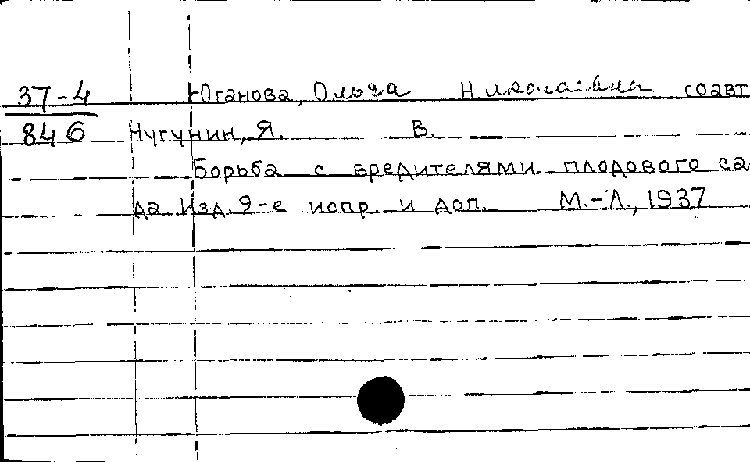 37-4 Юганова, Ольга Николаевна соавт
846 Чугунин, Я. В.
Борьба с вредителями плодового са
да Изд. 9-е испр. и доп. М.-Л., 1937